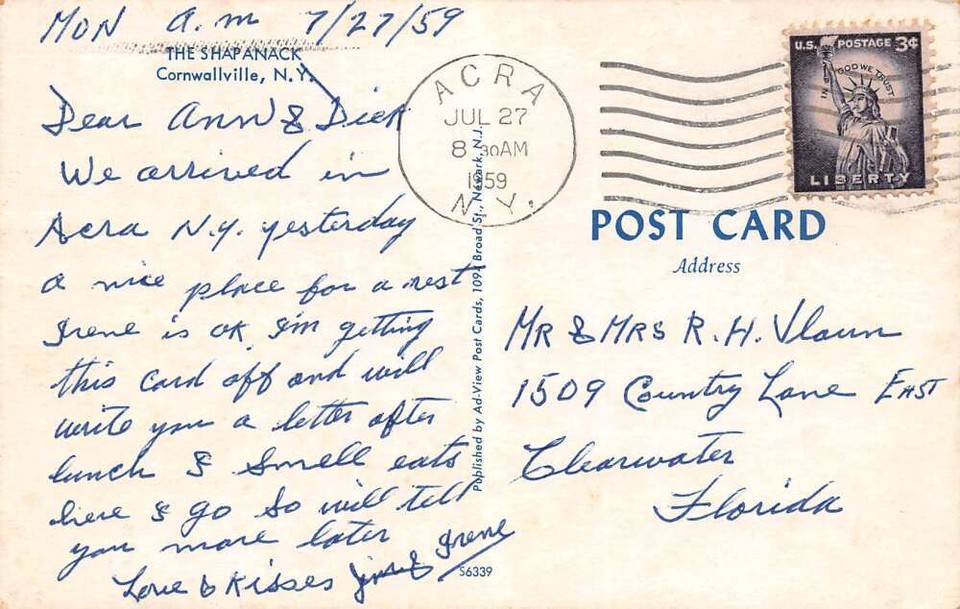 MON a.m 7/27/59
THE SHAPANACK
Cornwallville, N.Y.
Dear Ann & Dick
We arrived in
Acra N.y. yesterday
a nice place for a rest
Irene is ok, I'm getting
this card off and will
write you a letter after
lunch & smell eats
here & go so will tell
you more later
Love & Kisses
Irene
Published by Ad-View Post Cards, 109A Broad St., Newark, N.J.
S6339
ACRA
JUL 27
8 30AM
1959
N.Y.
U.S. POSTAGE 3¢
IN GOD WE TRUST
LIBERTY
POST CARD
Address
MR & MRS R. H.
1509 Country Lane EAST
Clearwater
Florida